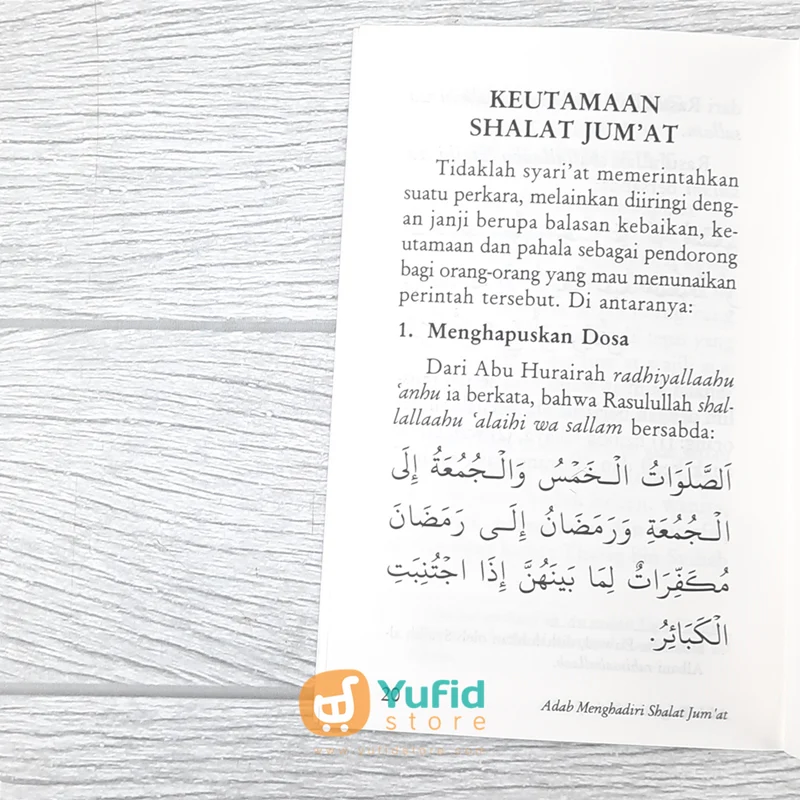 KEUTAMAAN
SHALAT JUM'AT
Tidaklah syari'at memerintahkan
suatu perkara, melainkan diiringi deng-
an janji berupa balasan kebaikan, ke-
utamaan dan pahala sebagai pendorong
bagi orang-orang yang mau menunaikan
perintah tersebut. Di antaranya:
1. Menghapuskan Dosa
Dari Abu Hurairah radhiyallaahu
'anhu ia berkata, bahwa Rasulullah shal-
lallaahu 'alaihi wa sallam bersabda:
اَلصَّلَوَاتُ الْخَمْسُ وَالْجُمُعَةُ إِلَى
الْجُمُعَةِ وَرَمَضَانُ إِلَى رَمَضَانَ
مُكَفِّرَاتٌ لِمَا بَيْنَهُنَّ إِذَا اجْتُنِبَتِ
الْكَبَائِرُ.
20
Adab Menghadiri Shalat Jum'at
Yufid
store